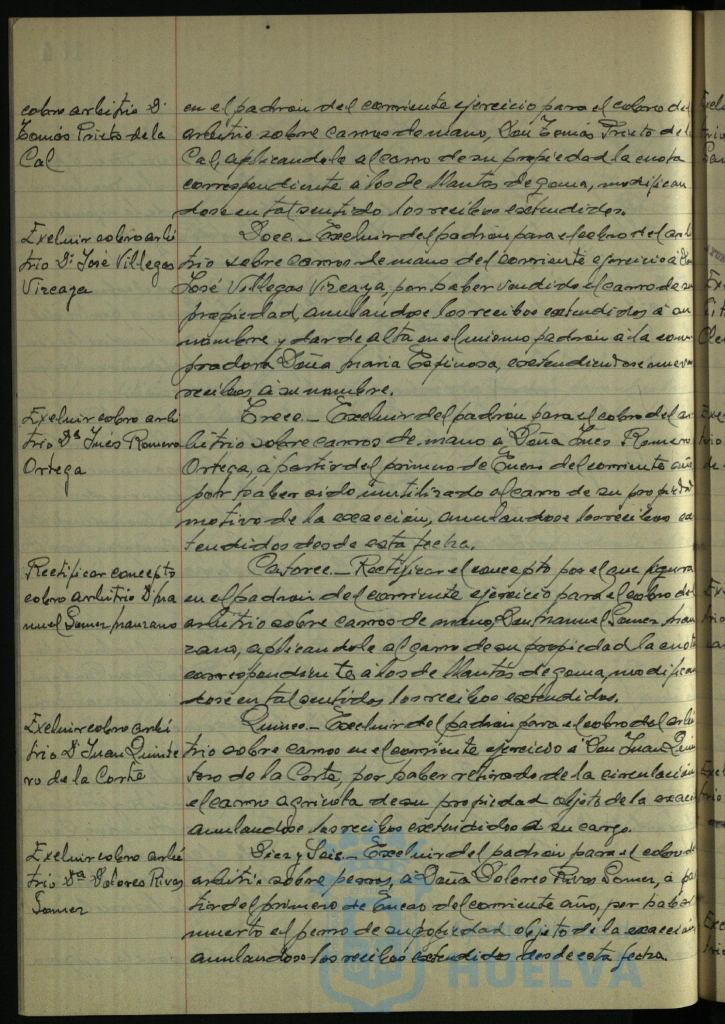 cobro arbitrio Dº
Tomás Prieto de la
Cal
en el padrón del corriente ejercicio para el cobro del
arbitrio sobre carros de mano, Don Tomás Prieto de la
Cal, aplicandole al carro de su propiedad la cuota
correspondiente á los de llantas de goma, modifican
dose en tal sentido los recibos extendidos.
Excluir cobro arbi
trio Dº José Villegas
Vizcaya
Doce.- Excluir del padrón para el cobro del arbi
trio sobre carros de mano del corriente ejercicio á Don
José Villegas Vizcaya, por haber vendido el carro de su
propiedad, anulandose los recibos extendidos á su
nombre y dar de alta en el mismo padrón á la com
pradora Doña Maria Espinosa, extendiendose nuevos
recibos á su nombre.
Excluir cobro arbi
trio Dª Ines Romero
Ortega
Trece.- Excluir del padrón para el cobro del ar
bitrio sobre carros de mano á Doña Ines Romero
Ortega, á partir del primero de Enero del corriente año
por haber sido inutilizado el carro de su propiedad
motivo de la exacción, anulandose los recibos ex
tendidos desde esta fecha.
Rectificar concepto
cobro arbitrio Dº Ma
nuel Gomez Manzano
Catorce.- Rectificar el concepto por el que figura
en el padrón del corriente ejercicio para el cobro del
arbitrio sobre carros de mano, Don Manuel Gomez Man
zano, aplicandole al carro de su propiedad la cuota
correspondiente á los de llantas de goma, modifican
dose en tal sentidos los recibos extendidos.
Excluir cobro arbi
trio Dº Juan Quinte
ro de la Corte
Quince.- Excluir del padrón para el cobro del arbi
trio sobre carros en el corriente ejercicio á Don Juan Quin
tero de la Corte, por haber retirado de la circulación
el carro agricola de su propiedad objeto de la exacción
anulandose los recibos extendidos á su cargo.
Excluir cobro arbi
trio Dª Dolores Rivas
Gomez
Diez y Seis.- Excluir del padrón para el cobro de
arbitrio sobre perros, á Doña Dolores Rivas Gomez, á par
tir del primero de Enero del corriente año, por haber
muerto el perro de su propiedad objeto de la exacción
anulandose los recibos extendidos desde esta fecha.
HUELVA